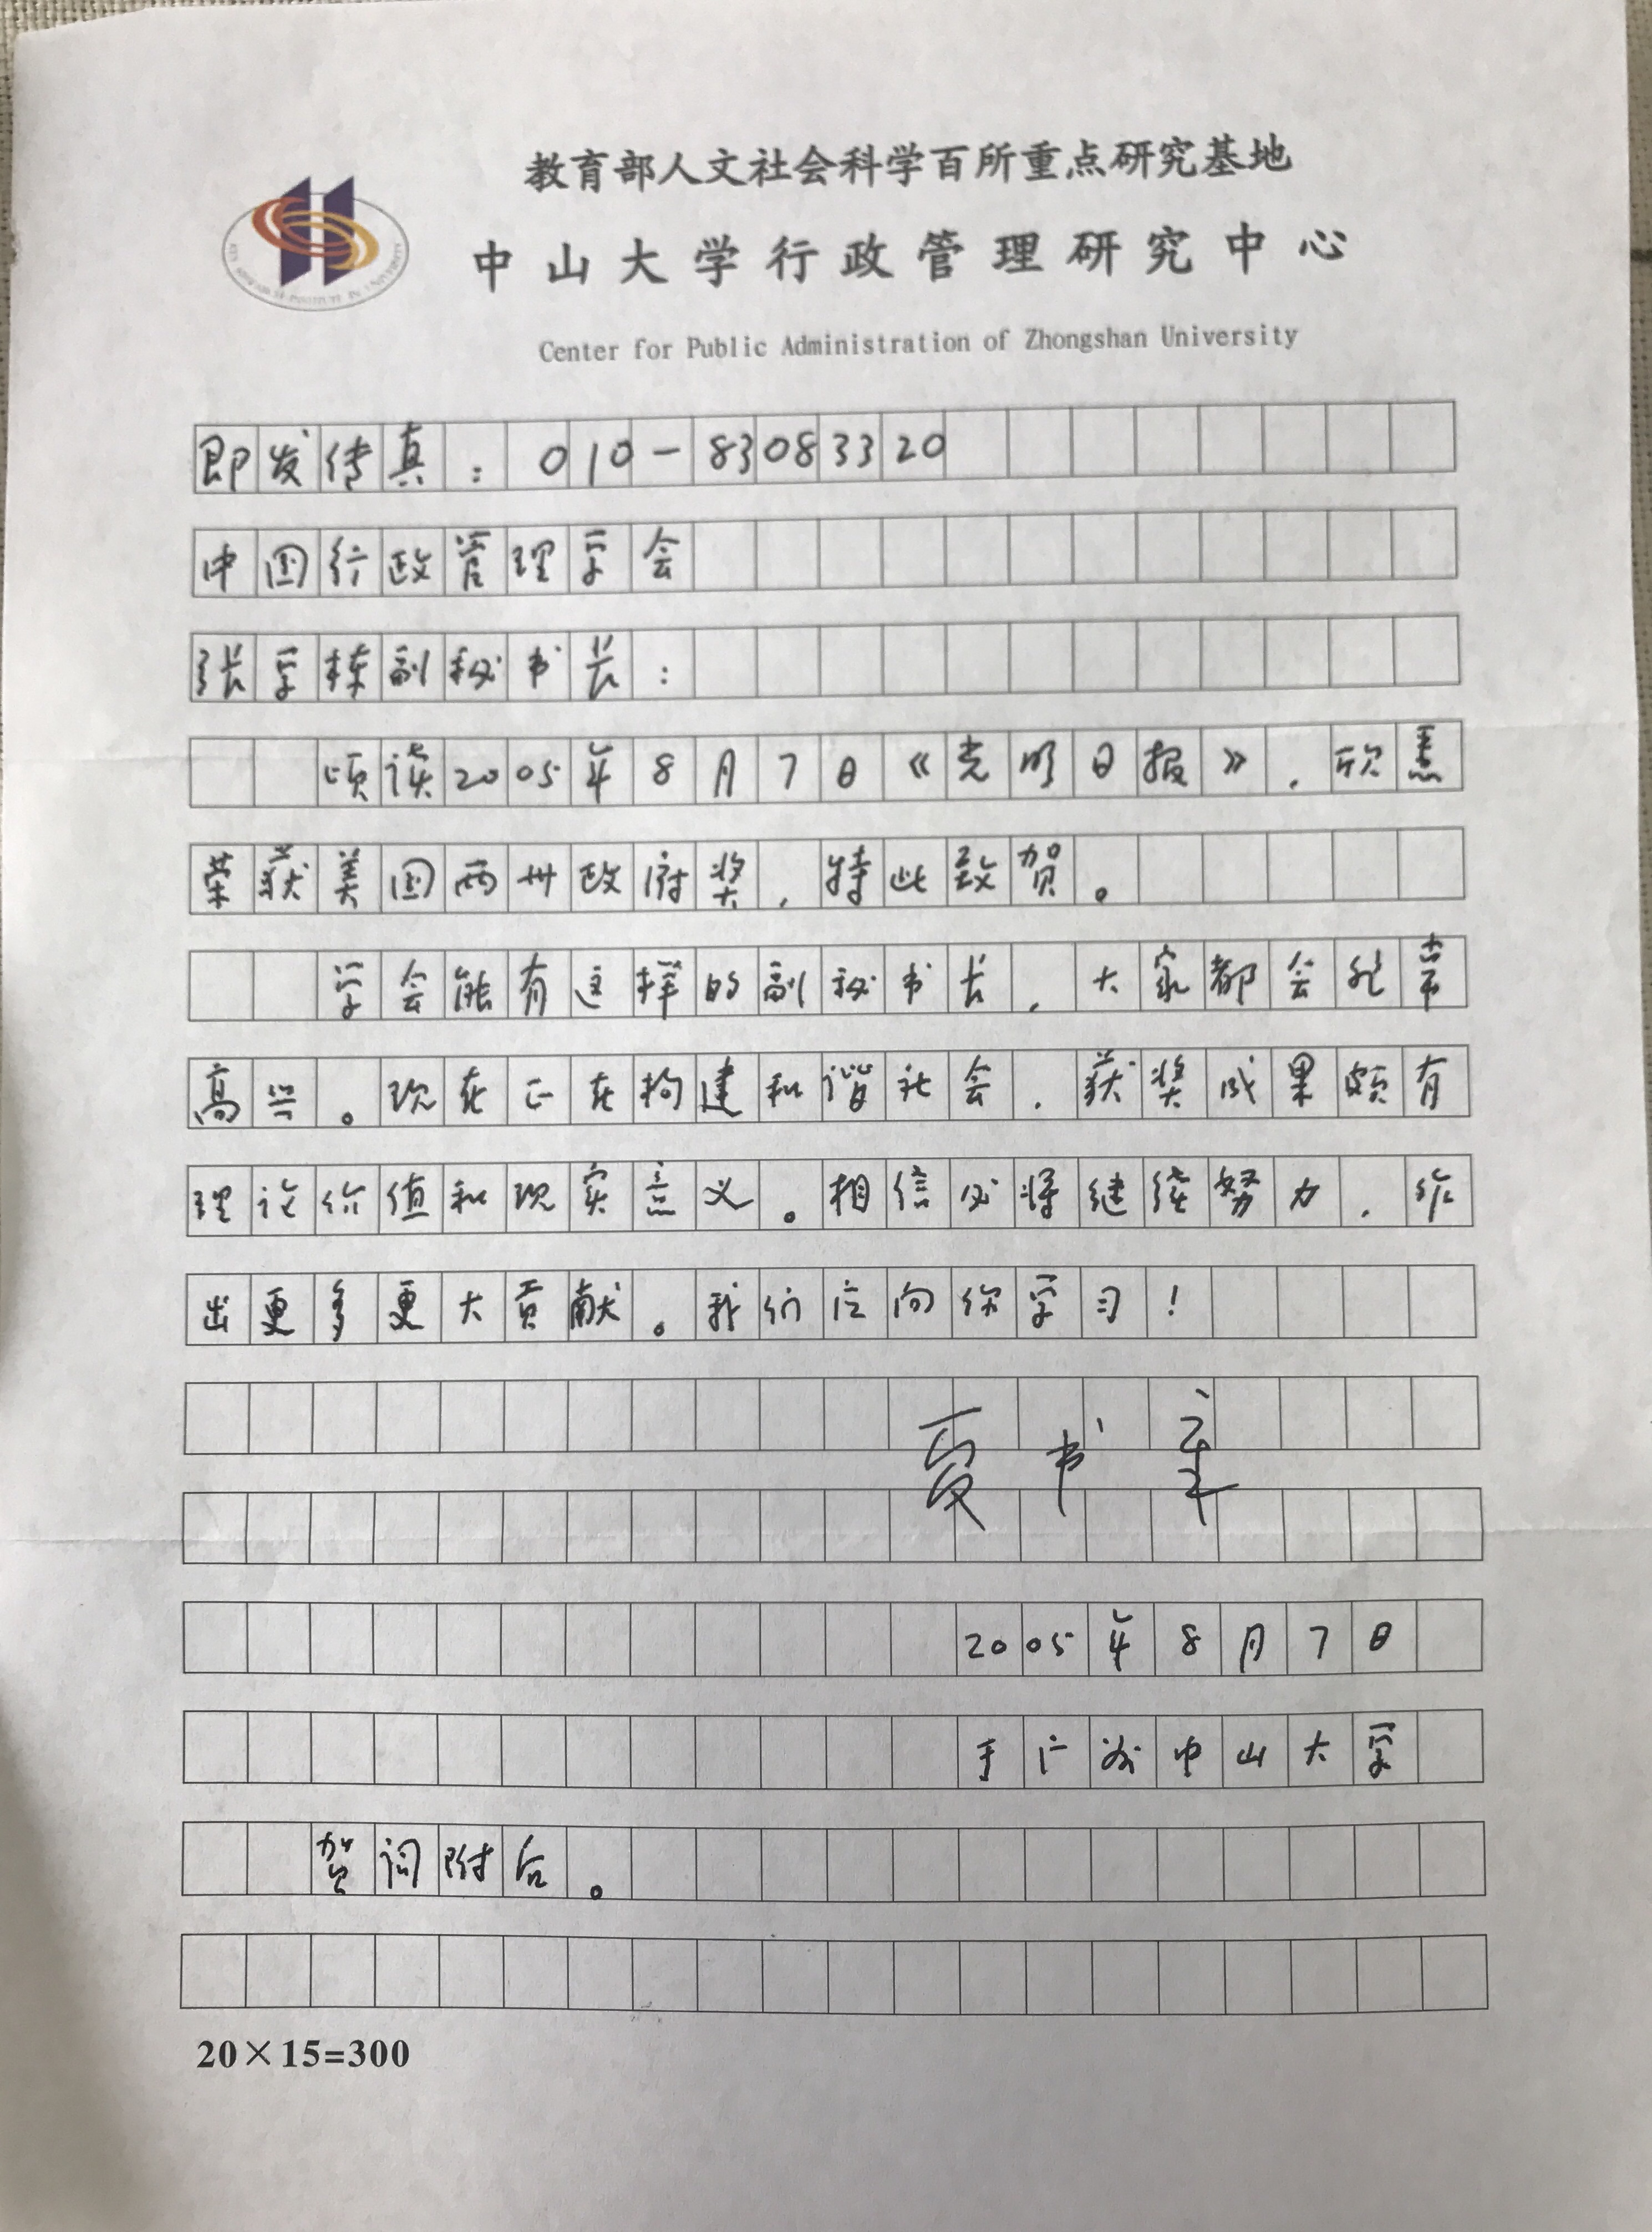 教育部人文社会科学百所重点研究基地
中山大学行政管理研究中心
Center for Public Administration of Zhongshan University
即发传真:010-83083320
中国行政管理学会
张学栋副秘书长:
顷读2005年8月7日《光明日报》,欣悉
荣获美国两州政府奖,特此致贺。
学会能有这样的副秘书长,大家都会非常
高兴。现在正在构建和谐社会,获奖成果颇有
理论价值和现实意义。相信必将继续努力,作
出更多更大贡献。我们应向你学习!
夏书章
2005年8月7日
于广州中山大学
贺词附后。
20×15=300